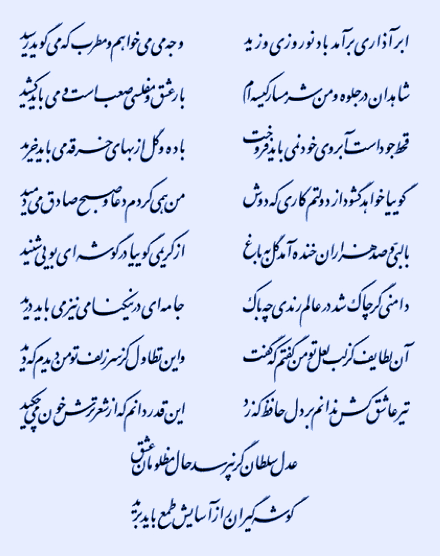 ابر آذاری برآمد باد نوروزی وزید وجه می می‌خواهم و مطرب که می‌گوید رسید
شاهدان در جلوه و من شرمسار کیسه‌ام بار عشق و مفلسی صعب است و می باید کشید
قحط جود است آبروی خود نمی باید فروخت باده و گل از بهای خرقه می باید خرید
گوییا خواهد گشود از دولتم کاری که دوش من همی کردم دعا و صبح صادق می دمید
با لبی و صد هزاران خنده آمد گل به باغ از کریمی گوییا در گوشه ای بویی شنید
دامنی گر چاک شد در عالم رندی چه باک جامه ای در نیک نامی نیز می باید درید
آن لطایف کز لب لعل تو من گفتم که گفت وین تطاول کز سر زلف تو من دیدم که دید
تیر عاشق کش ندانم بر دل حافظ که زد این قدر دانم که از شعر ترش خون می چکید
عدل سلطان گر نپرسد حال مظلومان عشق
گوشه گیران را ز آسایش طمع باید برید